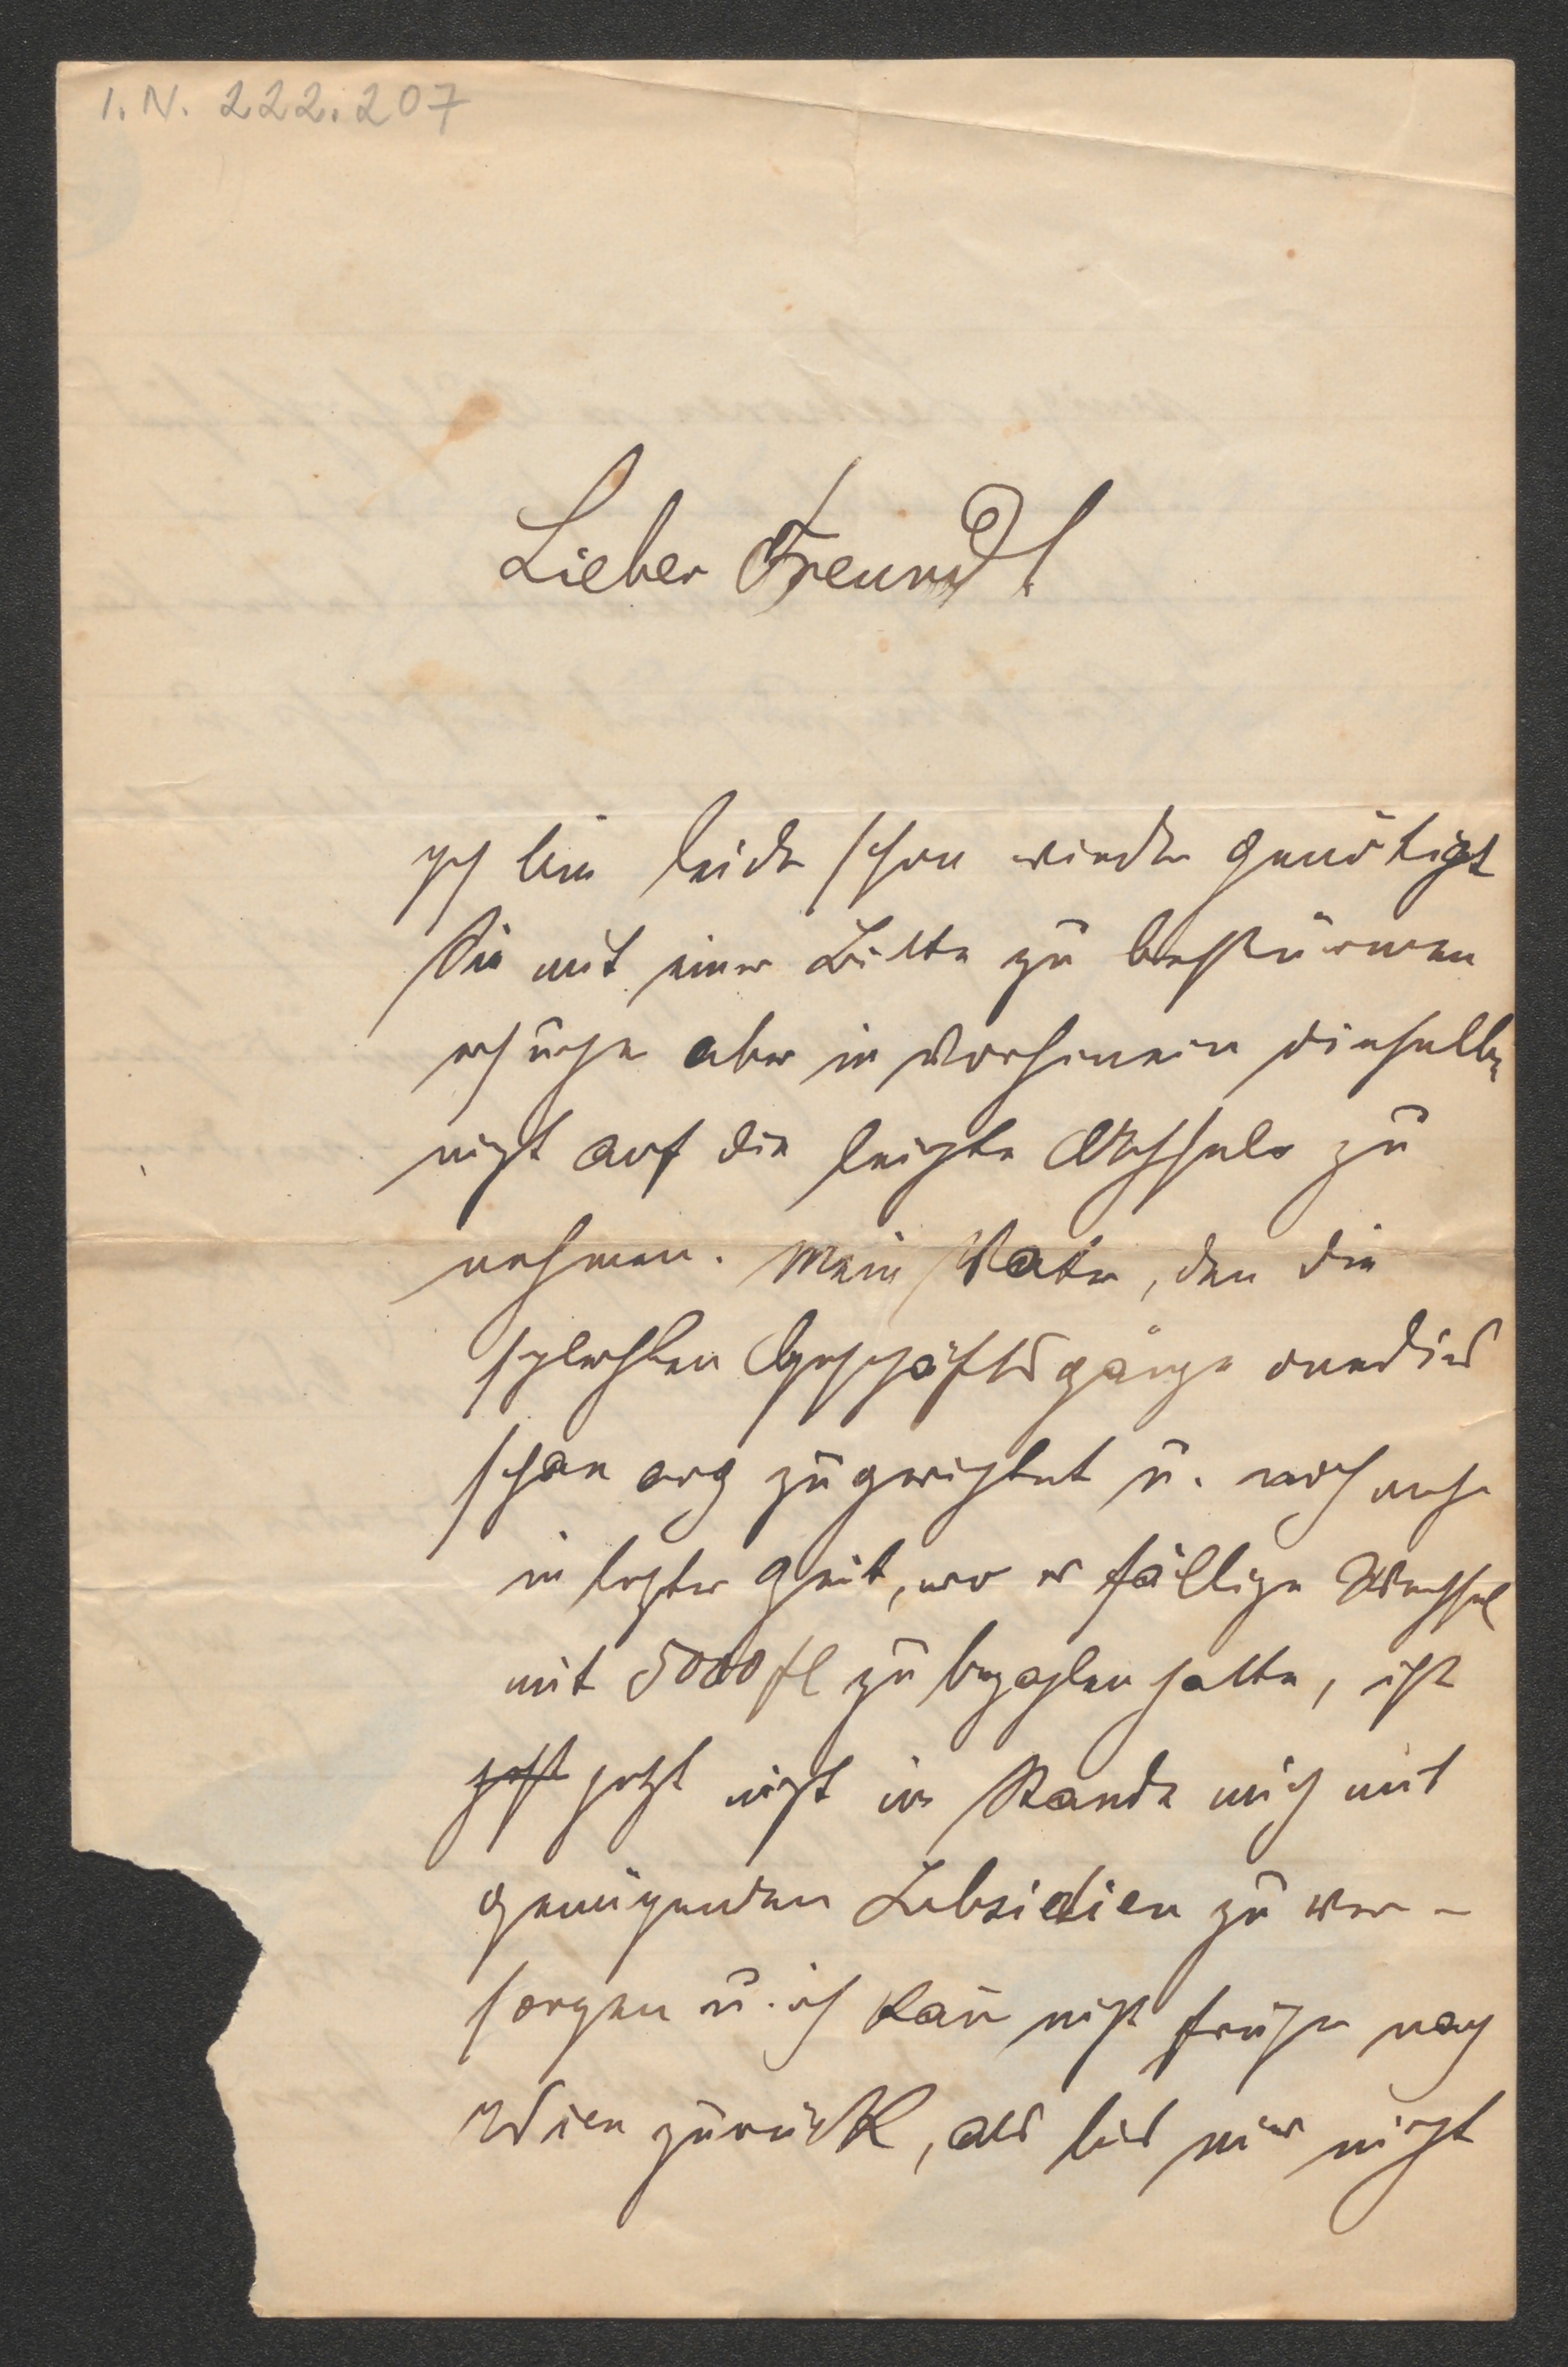 I. N. 222.207
Lieber Freund!
Ich bin leider schon wieder genötigt
Sie mit einer Bitte zu bestürmen
ersuche aber in Vorhinein dieselbe
nicht auf die leichte Achsel zu
nehmen. Mein Vater, den die
schlechten Geschäftsgänge
schon arg zugerichtet u.
in letzter Zeit, wo er fällige Wechsel
mit 5000 fl zu bezahlen hatte, ist
jetzt nicht im Stande mich mit
genügenden Subsidien zu ver-
sorgen u. ich kan̄ nicht früher nach
Wien zurück, als bis mir nicht